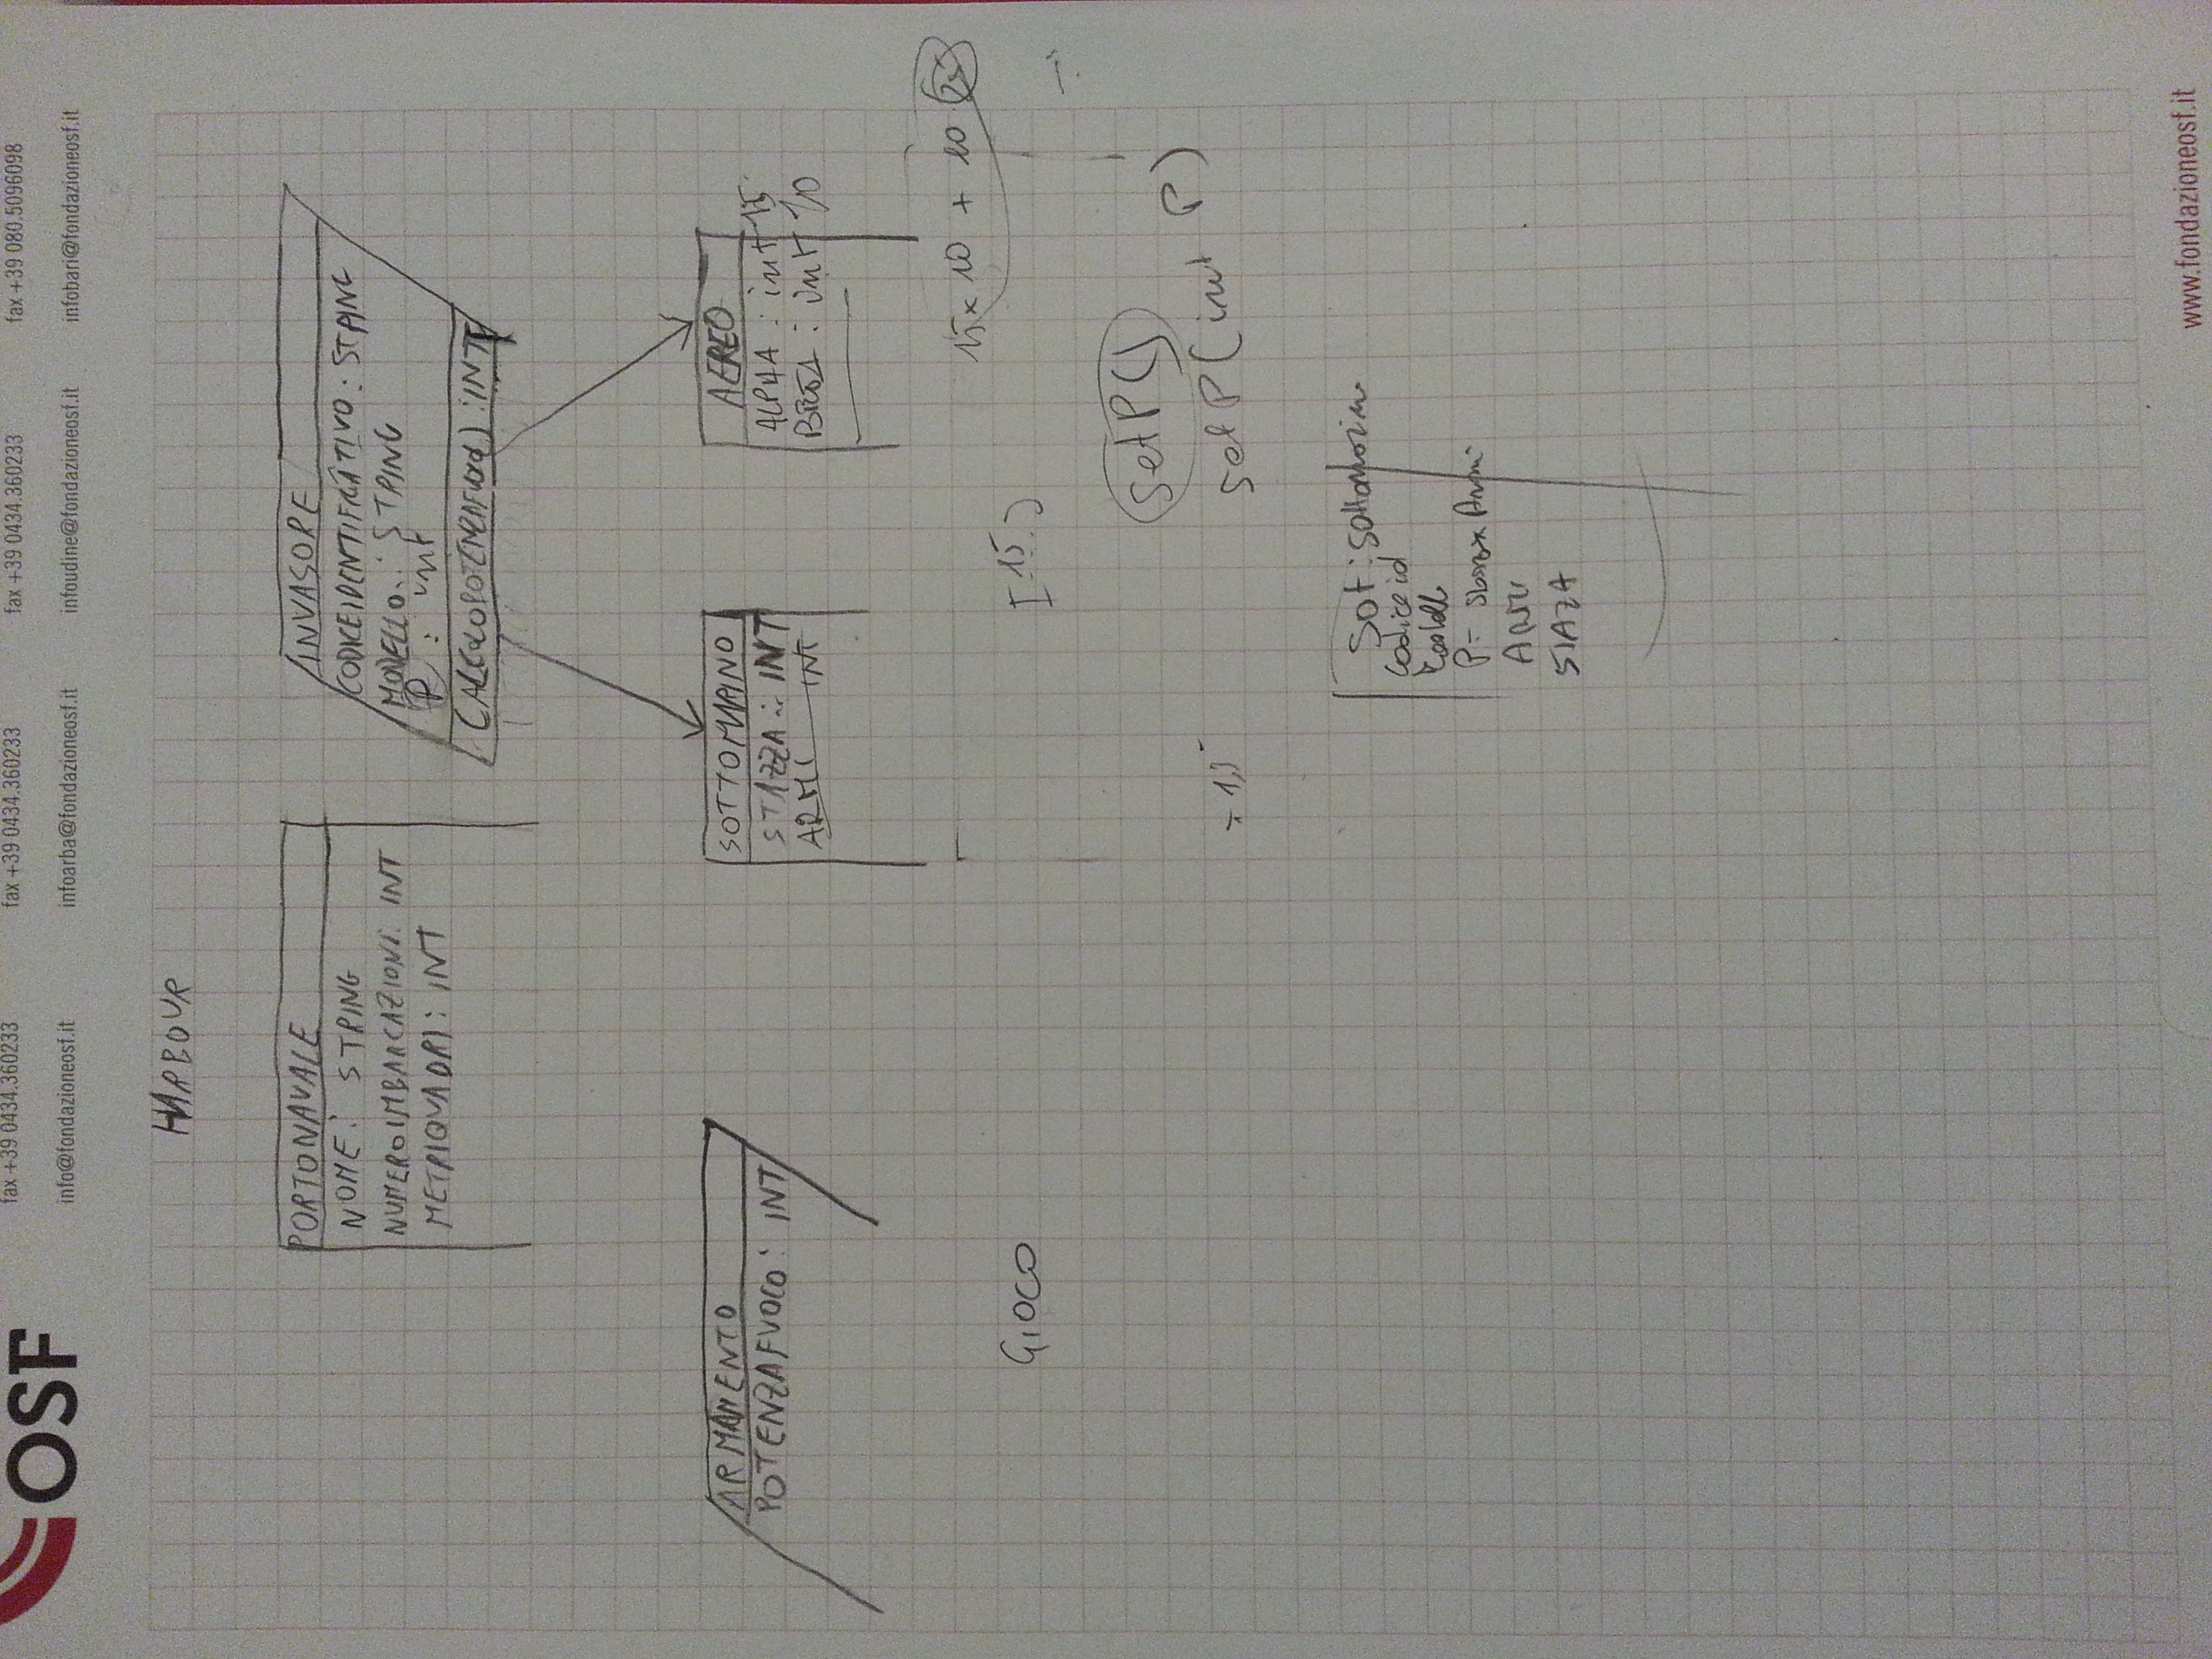 OSF
fax +39 0434.360233 fax +39 0434.360233 fax +39 0434.360233 fax +39 080.5096098
info@fondazioneosf.it infoarba@fondazioneosf.it infoudine@fondazioneosf.it infobari@fondazioneosf.it
HARBOUR
PORTONAVALE
NOME: STRING
NUMEROIMBARCAZIONI: INT
METRIQUADRI: INT
INVASORE
CODICEIDENTIFICATIVO: STRING
MODELLO: STRING
P: int
CALCOLOPOTENZAFUOCO(): INT
ARMAMENTO
POTENZAFUOCO: INT
SOTTOMARINO
STAZZA: INT
ARMI INT
AEREO
ALPHA: int 15
BETA: int 10
15x10 + 10
GIOCO
[15]
setP()
setP(int P)
Sot: Sottomarino
Codice id
P= Armi
Armi
STAZA
www.fondazioneosf.it